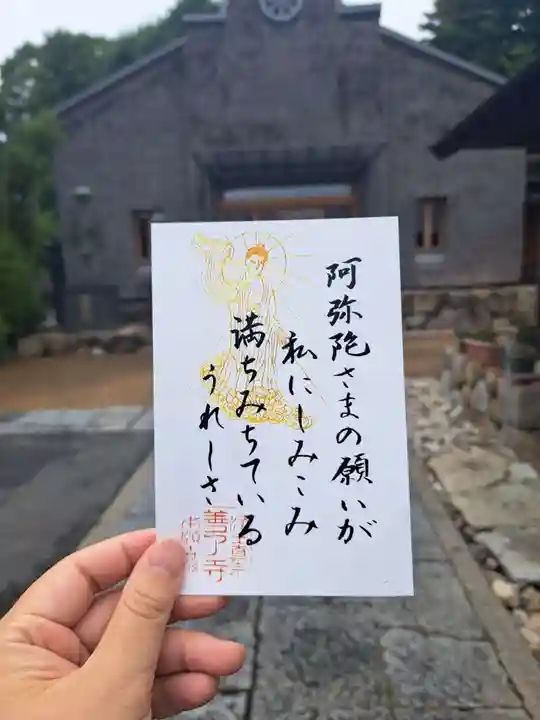 阿弥陀さまの願いが
私にしみこみ
満ちみちている
うれしさ
善了寺